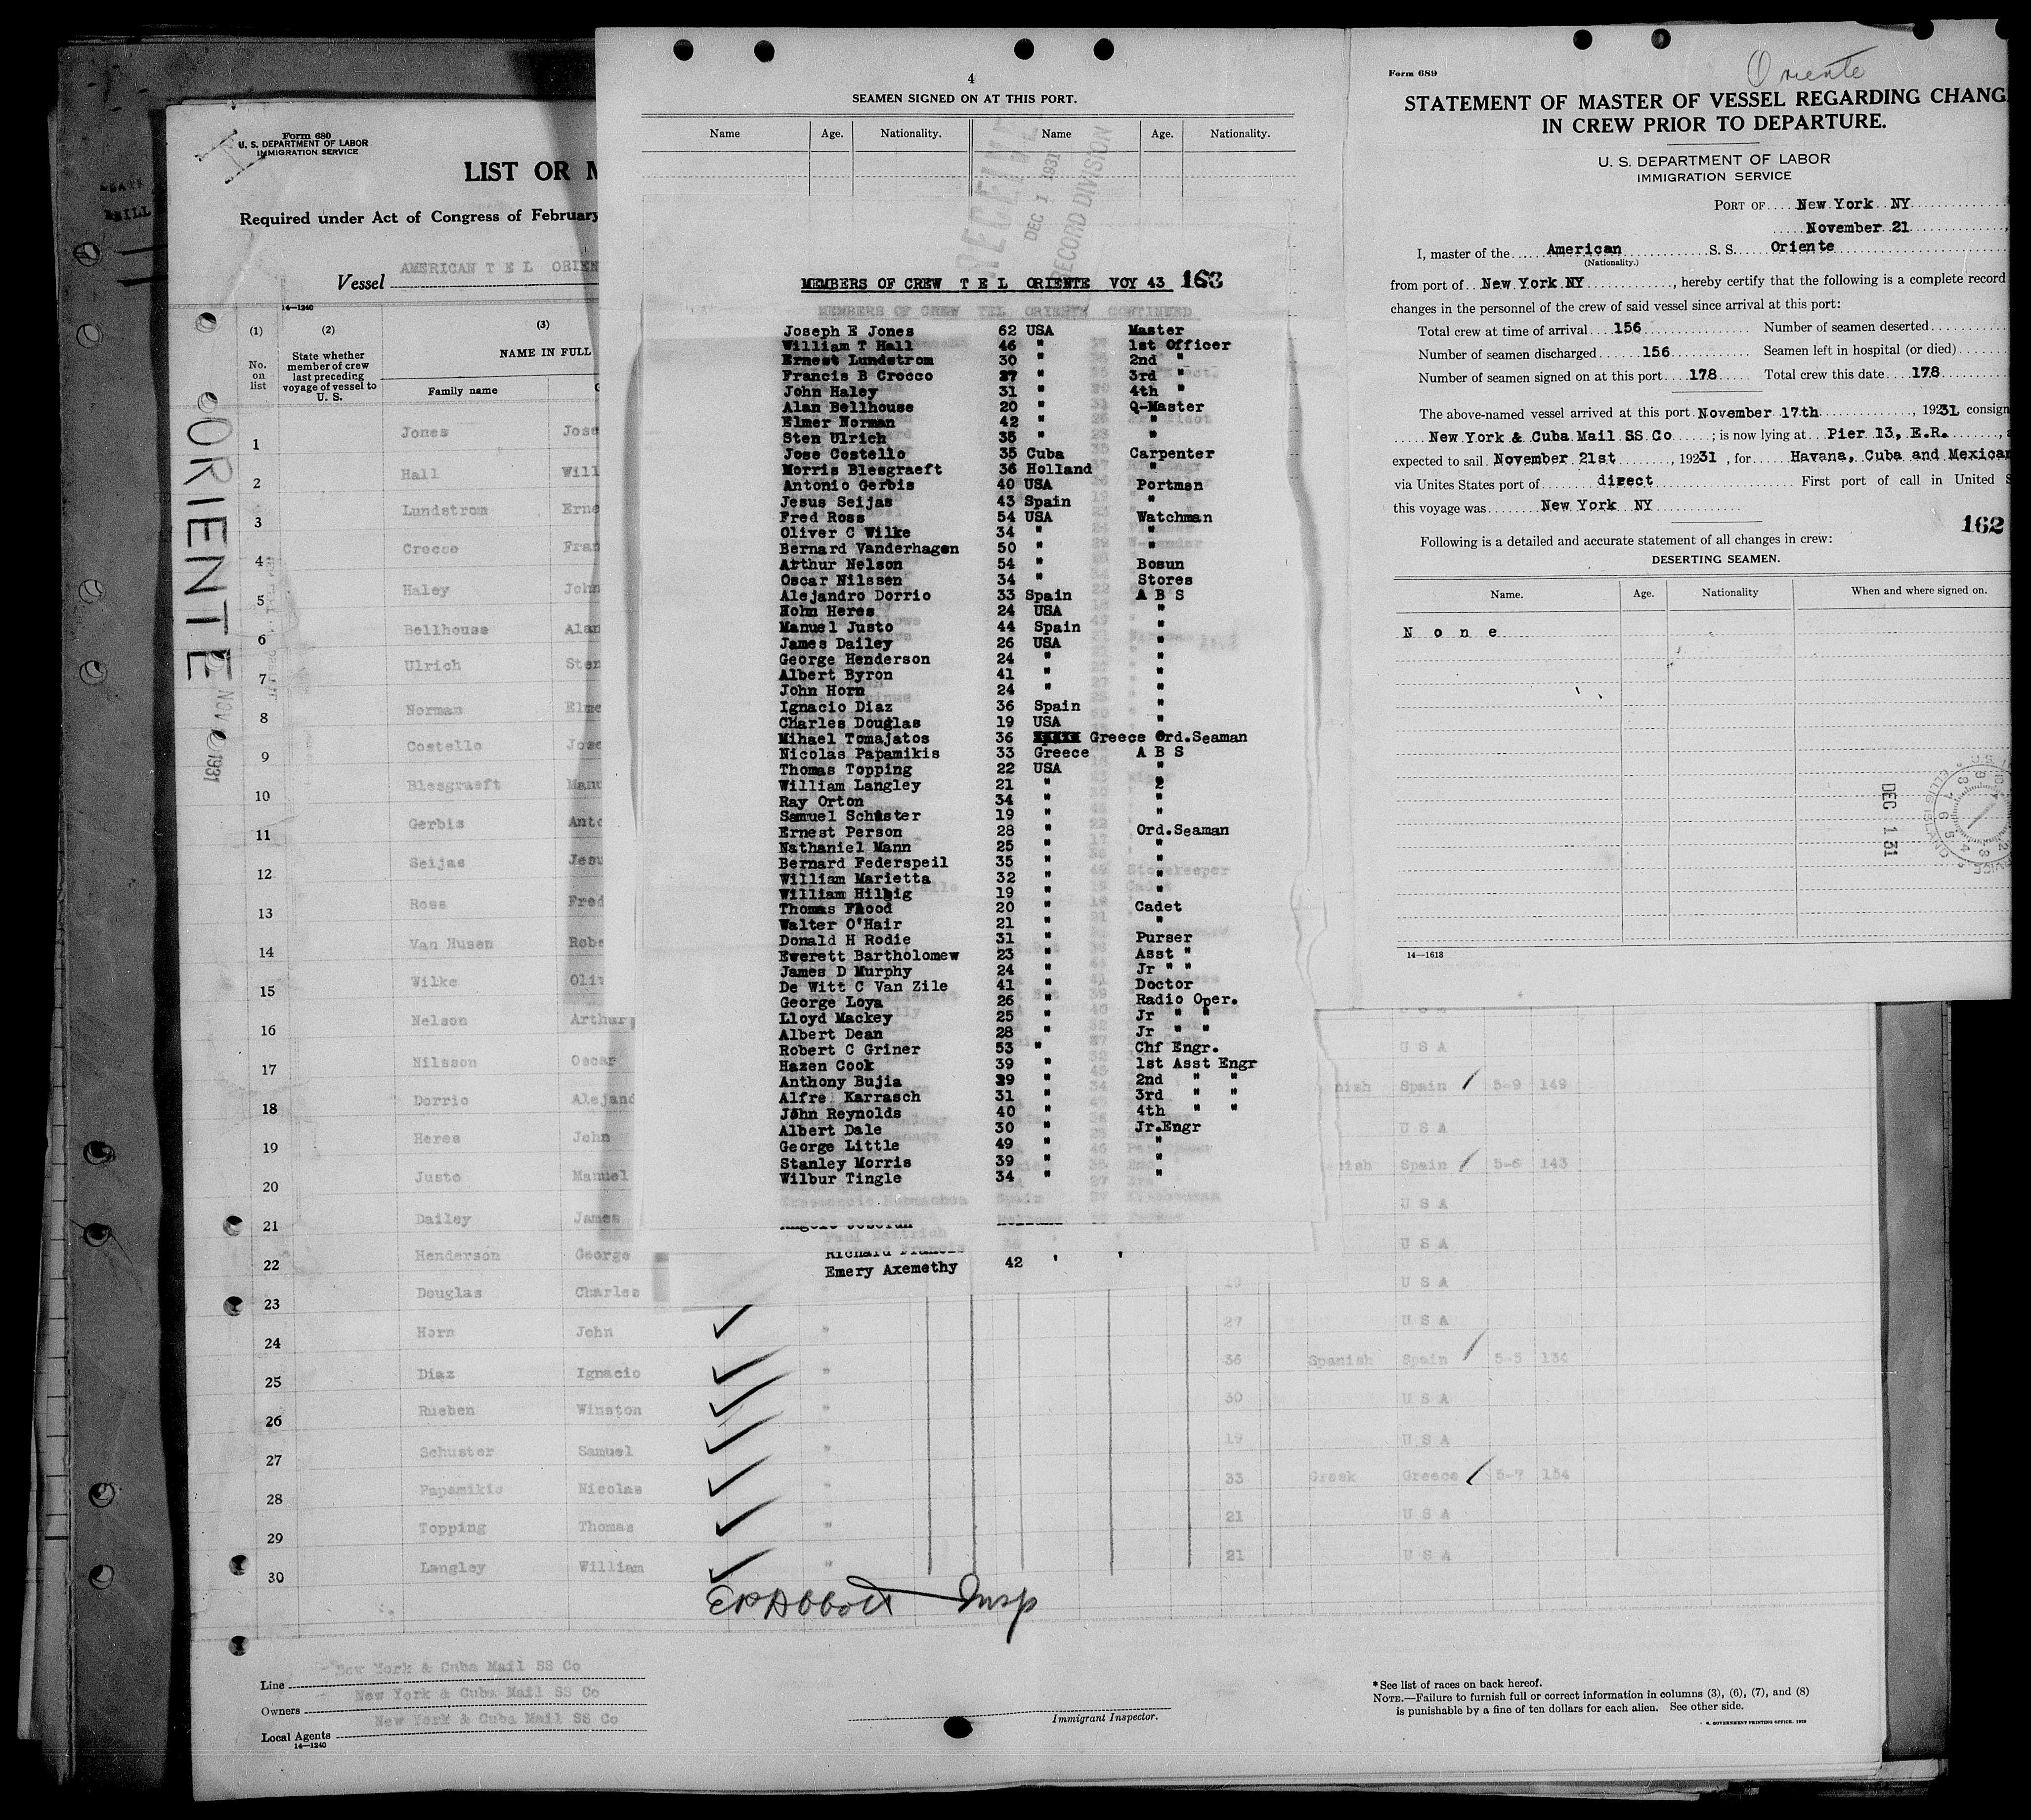 Form 680
U. S. DEPARTMENT OF LABOR
IMMIGRATION SERVICE
LIST OR M
Required under Act of Congress of February
Vessel AMERICAN T E L ORIEN
14—1240
(1) (2) (3)
No. on list
State whether member of crew last preceding voyage of vessel to U. S.
NAME IN FULL
Family name
ORIENTE
NOV 1931
1 Jones Jose
2 Hall Will
3 Lundstrom Erne
4 Crocco Fran
5 Haley John
6 Bellhouse Alan
7 Ulrich Sten
8 Norman Elme
9 Costello Jose
10 Blesgraeft Manu
11 Gerbis Anto
12 Seijas Jesu
13 Ross Fred
14 Van Husen Robe
15 Wilke Oliv
16 Nelson Arthur
17 Nilsson Oscar
18 Dorrio Alejand
19 Heres John
20 Justo Manuel
21 Dailey James
22 Henderson George
23 Douglas Charles
24 Horn John 27 U S A
25 Diaz Ignacio " 36 Spanish Spain 5-5 134
26 Rueben Winston " 30 U S A
27 Schuster Samuel " 19 U S A
28 Papamikis Nicolas " 33 Greek Greece 5-7 154
29 Topping Thomas " 21 U S A
30 Langley William " 21 U S A
U S A
nish Spain 5-9 149
U S A
ish Spain 5-6 143
U S A
U S A
U S A
E P Abbott Insp
Line New York & Cuba Mail SS Co
Owners New York & Cuba Mail SS Co
Local Agents New York & Cuba Mail SS Co
14—1240
Immigrant Inspector.
* See list of races on back hereof.
NOTE.—Failure to furnish full or correct information in columns (3), (6), (7), and (8)
is punishable by a fine of ten dollars for each alien. See other side.
GOVERNMENT PRINTING OFFICE
4
SEAMEN SIGNED ON AT THIS PORT.
Name Age. Nationality. Name Age. Nationality.
RECEIVED
DEC 1 1931
RECORD DIVISION
MEMBERS OF CREW T E L ORIENTE VOY 43 163
MEMBERS OF CREW TEL ORIENTE CONTINUED
Joseph E Jones 62 USA Master
William T Hall 46 " 1st Officer
Ernest Lundstrom 30 " 2nd "
Francis B Crocco 27 " 3rd "
John Haley 31 " 4th "
Alan Bellhouse 20 " Q-Master
Elmer Norman 42 " "
Sten Ulrich 35 " "
Jose Costello 35 Cuba Carpenter
Morris Blesgraeft 36 Holland "
Antonio Gerbis 40 USA Portman
Jesus Seijas 43 Spain "
Fred Ross 54 USA Watchman
Oliver C Wilke 34 " "
Bernard Vanderhagen 50 " "
Arthur Nelson 54 " Bosun
Oscar Nilssen 34 " Stores
Alejandro Dorrio 33 Spain A B S
Hohn Heres 24 USA "
Manuel Justo 44 Spain "
James Dailey 26 USA "
George Henderson 24 " "
Albert Byron 41 " "
John Horn 24 " "
Ignacio Diaz 36 Spain "
Charles Douglas 19 USA "
Mihael Tomajatos 36 Greece Ord.Seaman
Nicolas Papamikis 33 Greece A B S
Thomas Topping 22 USA "
William Langley 21 " 2
Ray Orton 34 " "
Samuel Schuster 19 " "
Ernest Person 28 " Ord.Seaman
Nathaniel Mann 25 " "
Bernard Federspeil 35 " "
William Marietta 32 " "
William Hilbig 19 " "
Thomas Flood 20 " Cadet
Walter O'Hair 21 " "
Donald H Rodie 31 " Purser
Everett Bartholomew 23 " Asst "
James D Murphy 24 " Jr " "
De Witt C Van Zile 41 " Doctor
George Loya 26 " Radio Oper.
Lloyd Mackey 25 " Jr " "
Albert Dean 28 " Jr " "
Robert C Griner 53 " Chf Engr.
Hazen Cook 39 " 1st Asst Engr
Anthony Bujia 29 " 2nd " "
Alfre Karrasch 31 " 3rd " "
John Reynolds 40 " 4th " "
Albert Dale 30 " Jr.Engr
George Little 49 " "
Stanley Morris 39 " "
Wilbur Tingle 34 " "
Emery Axemethy 42 ' '
Form 689
Oriente
STATEMENT OF MASTER OF VESSEL REGARDING CHANG
IN CREW PRIOR TO DEPARTURE.
U. S. DEPARTMENT OF LABOR
IMMIGRATION SERVICE
PORT OF New York NY
November 21
I, master of the American S. S. Oriente
(Nationality.)
from port of New York NY, hereby certify that the following is a complete record
changes in the personnel of the crew of said vessel since arrival at this port:
Total crew at time of arrival 156 Number of seamen deserted
Number of seamen discharged 156 Seamen left in hospital (or died)
Number of seamen signed on at this port 178 Total crew this date 178
The above-named vessel arrived at this port November 17th, 1931 consign
New York & Cuba Mail SS Co; is now lying at Pier 13, E.R.
expected to sail November 21st, 1931, for Havana, Cuba and Mexican
via Unites States port of direct First port of call in United S
this voyage was New York NY
162
Following is a detailed and accurate statement of all changes in crew:
DESERTING SEAMEN.
Name. Age. Nationality When and where signed on.
N o n e
DEC 1 31
14—1613